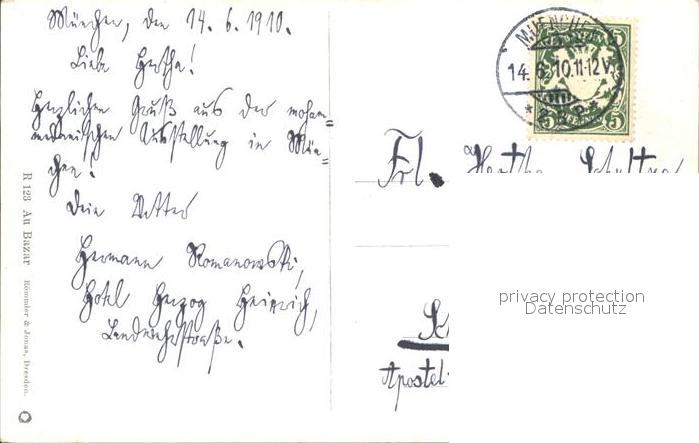 München, den 14. 6. 1910.
Liebe Hertha!
Herzlichen Gruß aus der moham=
medanischen Ausstellung in Mün=
chen!
Dein Vetter
Hermann Romanowski,
Hotel Herzog Heinrich,
Landwehrstraße.
R 123 Au Bazar Römmler & Jonas, Dresden.
MUENCHEN
14. 6. 10. 11-12 V.
5 5
5
Frl. Hertha
Apostel
privacy protection
Datenschutz